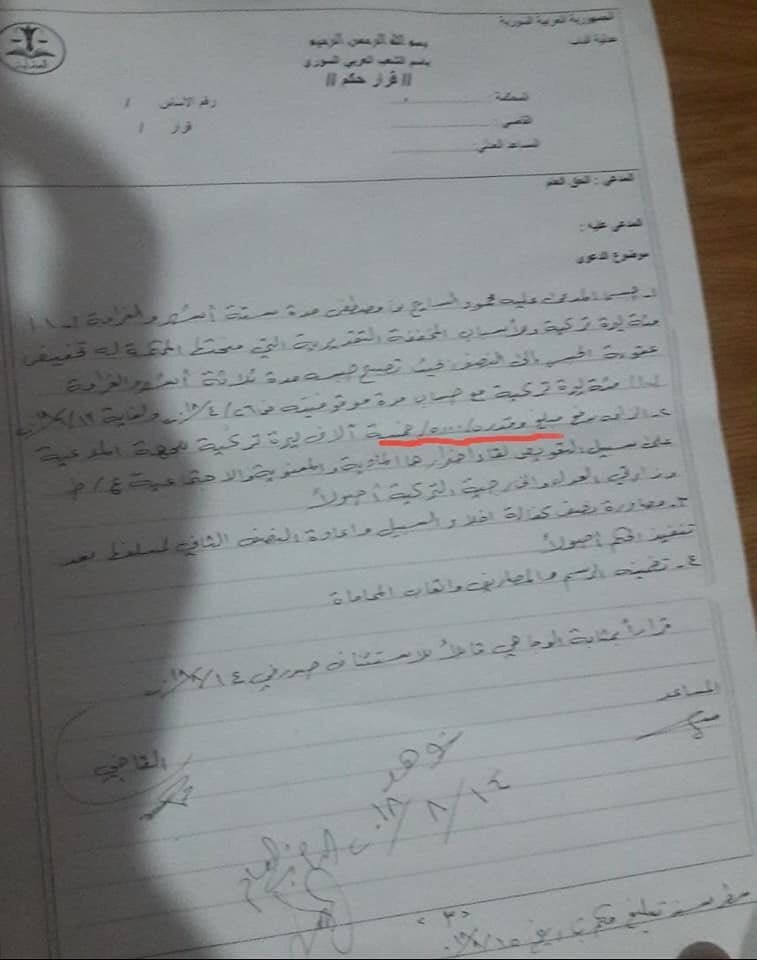 الجمهورية العربية السورية
بسم الله الرحمن الرحيم
باسم الشعب العربي السوري
// قرار حكم //
المحكمة :
رقم الأساس /
القاضي :
قرار /
المساعد العدلي:
المدعي : الحق العام
المدعى عليه :
موضوع الدعوى
١- حبس المدعى عليه محمود السايح بن مصطفى مدة ستة أشهر والغرامة /١٠٠/
مئة ليرة تركية وللأسباب المخففة التقديرية التي منحتها المحكمة له تخفيض
عقوبة الحبس إلى النصف بحيث تصبح حبسه مدة ثلاثة أشهر والغرامة
/١٠٠/ مئة ليرة تركية مع حساب مدة موقوفيته من ٢٦/٤/٢٠١٨ ولغاية
٢- الزامه دفع مبلغ وقدره /٥٠٠٠/ خمسة آلاف ليرة تركية للجهة المدعية
على سبيل التعويض لقاء أضرارها المادية والمعنوية والاجتماعية
وزارتي العدل والخارجية التركية أصولاً
٣- مصادرة نصف كفالة اخلاء السبيل واعادة النصف الثاني بعد
تنفيذ الحكم أصولاً
٤- تضمينه الرسم والمصاريف واتعاب المحاماة
قراراً بمثابة الوجاهي قابلاً للاستئناف صدر في ١٤/٨/٢٠١٨
المساعد
القاضي
شوهد
١٤/٨/٢٠١٨
<٣>